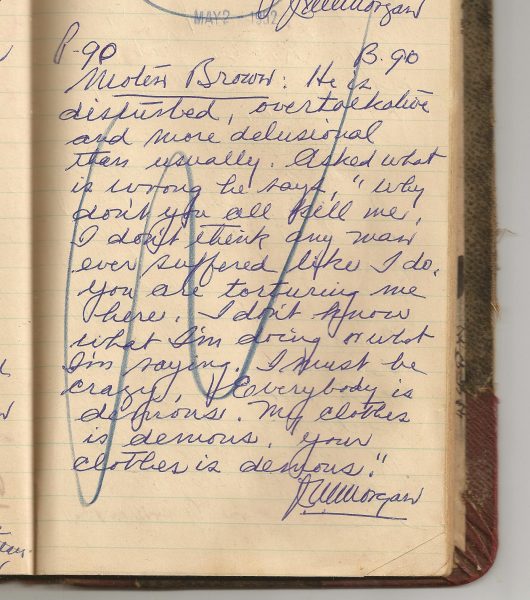 J.W.Morgan
MAY 2 - 1932
P-90 B.90
Brown: He is
disturbed, overtalkative
and more delusional
than usually. Asked what
is wrong he says, "Why
don't you all kill me,
I don't think any man
ever suffered like I do.
You are torturing me
here. I don't know
what I'm doing or what
I'm saying. I must be
crazy. Everybody is
demons. My clothes
is demons, your
clothes is demons."
Morgan